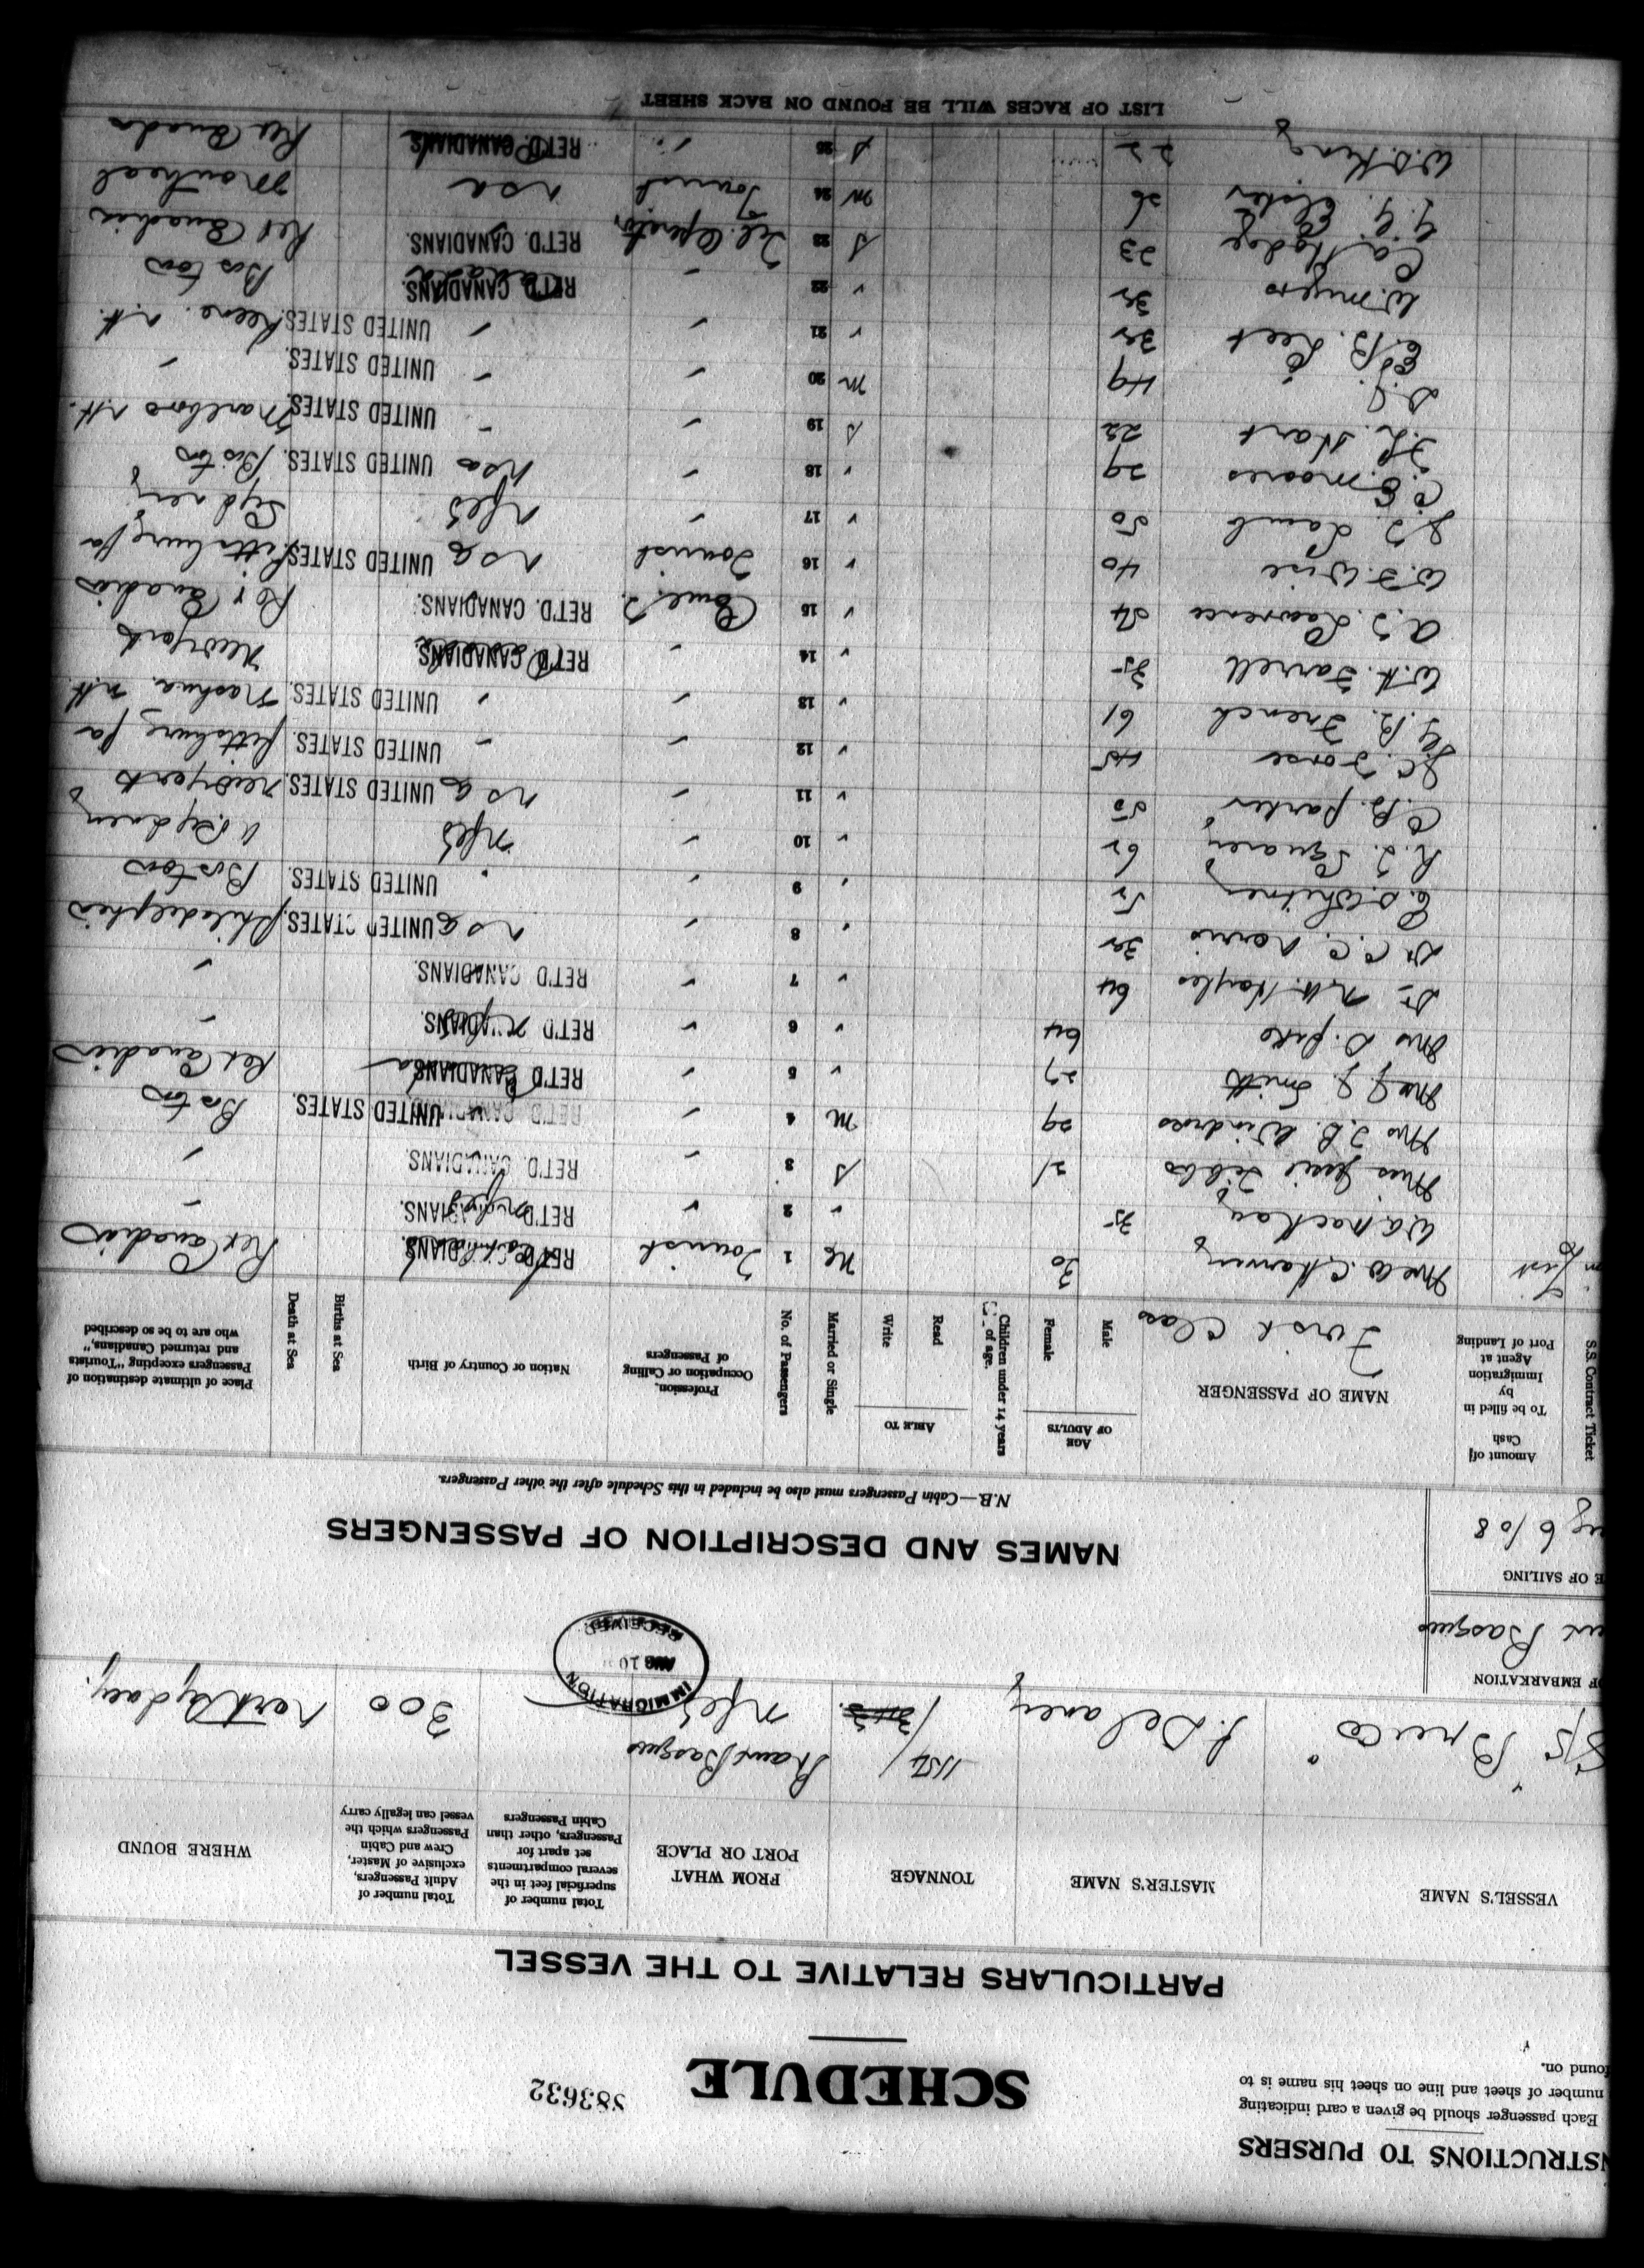 INSTRUCTIONS TO PURSERS
Each passenger should be given a card indicating
number of sheet and line on sheet his name is to
found on.
SCHEDULE
583632
PARTICULARS RELATIVE TO THE VESSEL
VESSEL'S NAME MASTER'S NAME TONNAGE FROM WHAT PORT OR PLACE Total number of superficial feet in the several compartments set apart for Passengers, other than Cabin Passengers Total number of Adult Passengers, exclusive of Master, Crew and Cabin Passengers which the vessel can legally carry WHERE BOUND
S/S "Bruce" J. Delaney 1154 Port Basques Nfld 300 North Sydney.
OF EMBARKATION
Basques
E OF SAILING
6/08
IMMIGRATION
AUG 10
RECEIVED
NAMES AND DESCRIPTION OF PASSENGERS
N.B.—Cabin Passengers must also be included in this Schedule after the other Passengers.
S.S. Contract Ticket Amount of Cash To be filled in by Immigration Agent at Port of Landing NAME OF PASSENGER AGE OF ADULTS Male Female Children under 14 years of age. ABLE TO Read Write Married or Single No. of Passengers Profession, Occupation or Calling of Passengers Nation or Country of Birth Births at Sea Death at Sea Place of ultimate destination of Passengers excepting "Tourists and returned Canadians," who are to be so described
First Class
Mrs W. Channing 30 1 Tourist RET'D CANADIANS. Ret Canadian
W A Mackay 35 2 RET'D CANADIANS.
Miss Jessie 21 S 3 RET'D. CANADIANS.
Mrs J. B. Windross 29 M 4 UNITED STATES. Boston
Mrs J. J. Smith 27 5 RET'D CANADIANS. Ret Canadian
Mrs D. Pike 64 6 RET'D CANADIANS.
Dr N. H. Hayles 64 7 RET'D CANADIANS.
Dr C. C. Norris 32 8 U S A UNITED STATES. Philadelphia
E. S. Whitney 52 9 UNITED STATES. Boston
R. J. Squarey 62 10 Nfld N. Sydney
C. B. Parker 50 11 U S A UNITED STATES. New York
J. C. Forse 45 12 UNITED STATES. Pittsburg Pa
G. B. French 61 13 UNITED STATES. Nashua N.H.
W. H. Farrell 35 14 RET'D CANADIANS. New York
A. J. Lawrence 54 15 Coml. T. RET'D. CANADIANS. Ret Canadian
W. F. Wise 40 16 Tourist U S A UNITED STATES. Pittsburg Pa
J. J. Lamb 50 17 Nfld Sydney
C. E. Moores 29 18 U S A UNITED STATES. Boston
F. L. Hart 22 S 19 UNITED STATES. Marlboro N.H.
49 M 20 UNITED STATES.
E. B. Leet 32 21 UNITED STATES. Keene. N.H.
W. Myers 32 22 RET'D CANADIANS. Boston
C A Hodge 23 S 23 Tel. Operator RET'D. CANADIANS. Ret Canadian
26 M 24 Tourist U S A Montreal
W. S. King 22 S 25 RET'D. CANADIANS. Ret Canada
LIST OF RACES WILL BE FOUND ON BACK SHEET